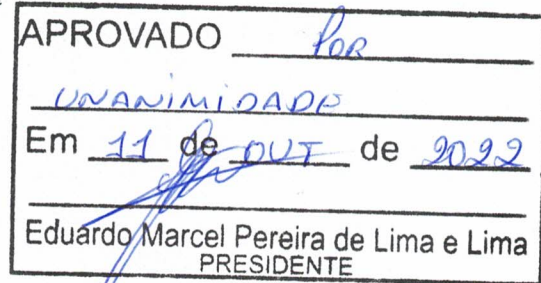 APROVADO Por
UNANIMIDADE
Em 11 de OUT de 2022
Eduardo Marcel Pereira de Lima e Lima
PRESIDENTE